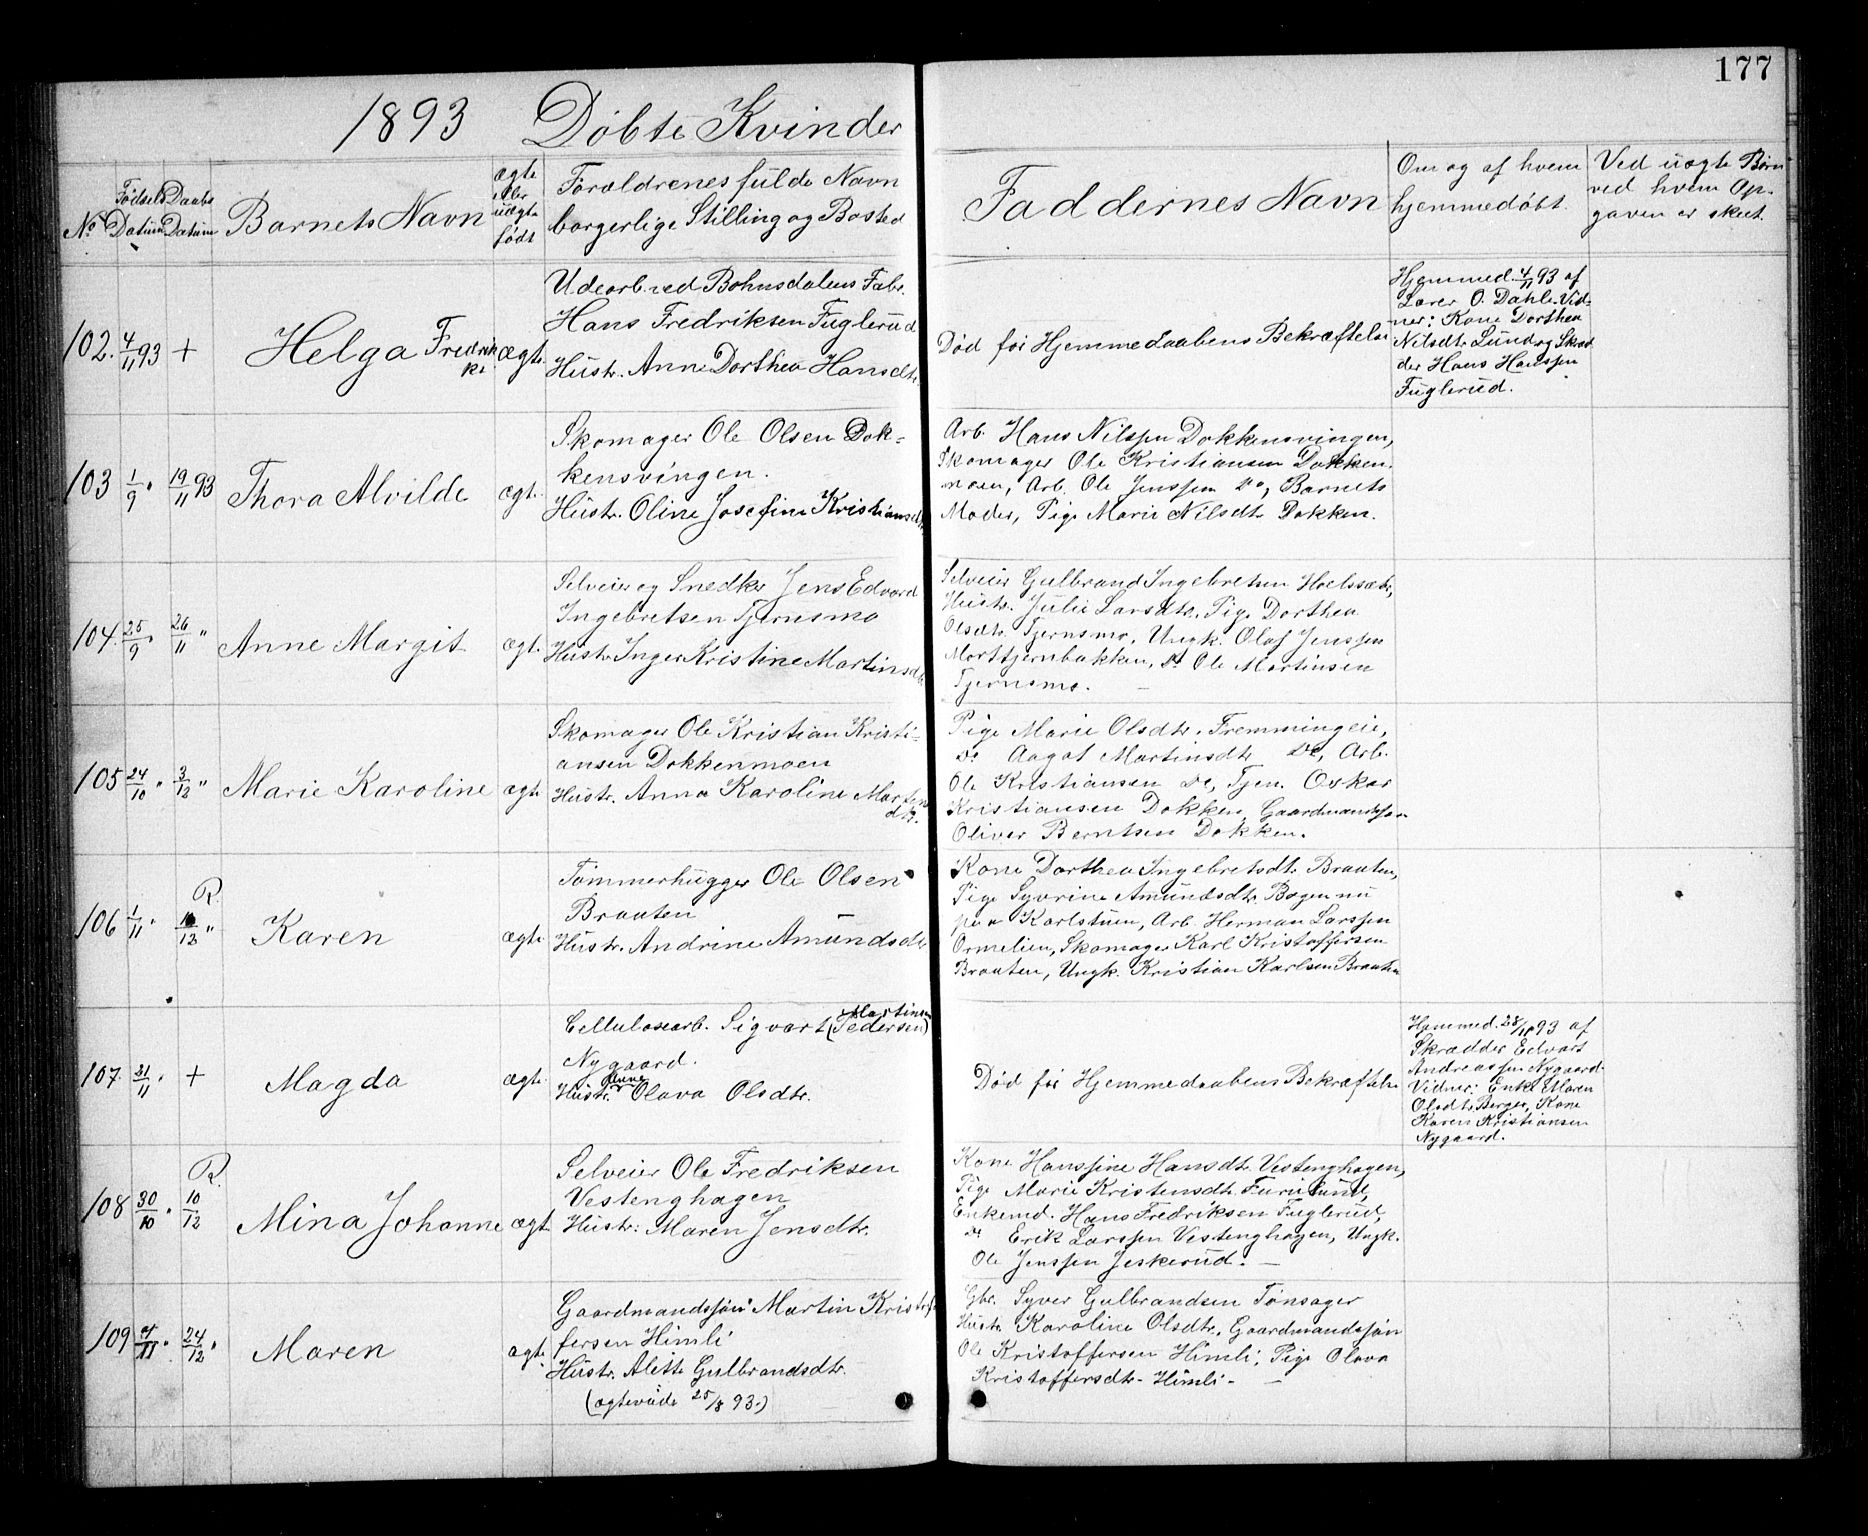 177
1893 Döbte Kvinder
No
Fødsels Datum
Daabs Datum
Barnets Navn
ægte eller uægte født
Forældrenes fulde Navn
borgerlige Stilling og Bosted
Faddernes Navn
Om og af hvem
hjemmedöbt.
Ved uægte Börn
ved hvem Op-
gaven er skeet.
102. 4/11 93 + Helga Fredrikke ægte
Udearb. ved Bohnsdalens Fabr.
Hans Fredriksen Fuglerud
Hustr. Anne Dorthea Hansdtr.
Död för Hjemmedaabens Bekræftelse
Hjemmed. 4/11 93 af
Lærer O. Dahl. Vid-
ner: Kone Dorthea
Nilsdtr. Lund og Skræd
der Hans Hanssen
Fuglerud.
103 1/9 " 19/11 93 Thora Alvilde ægt.
Skomager Ole Olsen Dok-
kensvingen.
Hustr. Oline Josefine Kristiansdtr.
Arb. Hans Nilssen Dokkensvingen,
Skomager Ole Kristiansen Dokken-
moen, Arb. Ole Jenssen Do, Barnets
Moder, Pige Marie Nilsdtr. Dokken.
104. 25/9 " 26/11 " Anne Margit ægt.
Selveier og Snedker Jens Edvard
Ingebretsen Tjernsmo
Hustr. Inger Kristine Martinsdtr.
Selveier Gulbrand Ingebretsen Holssæter,
Hustr. Julie Larsdtr. Pige Dorthea
Olsdtr. Tjernsmo, Ungk. Olaf Jenssen
Morttjernbakken, Do Ole Martinsen
Tjernsmo. —
105 24/10 " 3/12 " Marie Karoline ægte
Skomager Ole Kristian Kristi-
ansen Dokkenmoen
Hustr. Anna Karoline Martens
dtr.
Pige Marie Olsdtr. Fremmingeie,
Do Aagot Martinsdtr. Do, Arb.
Ole Kristiansen Do, Tjen. Oskar
Kristiansen Dokken, Gaardmandssøn
Oliver Berntsen Dokken.
R.
106 1/11 " 10/12 " Karen ægte
Tömmerhugger Ole Olsen
Braaten
Hustr. Andrine Amundsdtr
Kone Dorthea Ingebretsdtr. Braaten,
Pige Syverine Amundsdtr. Bogen nu
paa Karlstuen, Arb. Herman Larssen
Ormelien, Skomager Karl Kristoffersen
Braaten, Ungk. Kristian Karlsen Braaten
107. 21/11 " + Magda ægte
Martinsen
Cellulosearb. Sigvart (Pedersen)
Nygaard.
Anne
Hustr. Olava Olsdtr.
Död för Hjemmedaabens Bekræftelse
Hjemmed. 28/11 93 af
Skrædder Edvart
Andreassen Nygaard.
Vidner: Enke Maren
Olsdtr. Berger, Kone
Karen Kristiansen
Nygaard.
R.
108 30/10 " 10/12 Mina Johanne ægt.
Selveier Ole Fredriksen
Vestenghagen
Hustr: Maren Jensdtr.
Kone Hanssine Hansdtr. Vestenghagen,
Pige Marie Kristensdtr. Furulund,
Enkemd. Hans Fredriksen Fuglerud,
Do Erik Larssen Vestenghagen, Ungk.
Ole Jenssen Jeskerud. —
109 /11 " 24/12 " Maren ægte
Gaardmandssön Martin Kristof-
fersen Himli
Hustr. Alette Gulbrandsdtr.
(ægteviede 25/8 93.)
Gbr. Syver Gulbrandsen Tönsager
Hustr. Karoline Olsdtr., Gaardmandssön
Ole Kristoffersen Himli, Pige Olava
Kristoffersdtr. Himli. —